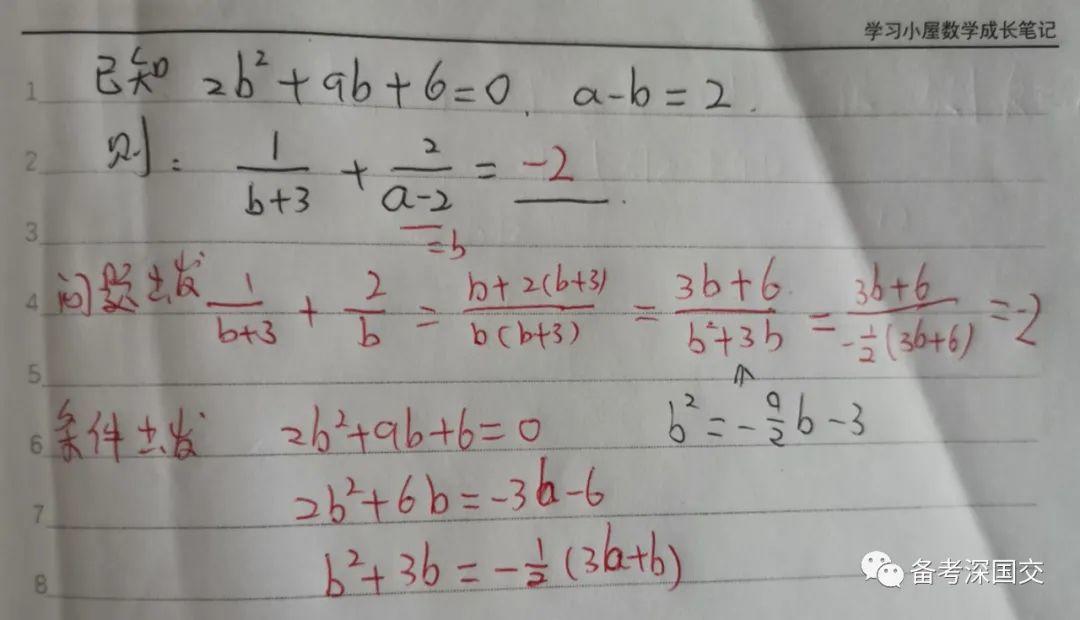 学习小屋数学成长笔记
1 已知 2b²+9b+6=0. a-b=2.
2 则: 1/(b+3) + 2/(a-2) = -2.
3 =b
4 问题出发 1/(b+3) + 2/b = (b+2(b+3))/(b(b+3)) = (3b+6)/(b²+3b) = (3b+6)/(-1/2(3b+6)) = -2
5
6 条件出发 2b²+9b+6=0 b²=-9/2b-3
7 2b²+6b=-3b-6
8 b²+3b=-1/2(3b+6)
备考深国交